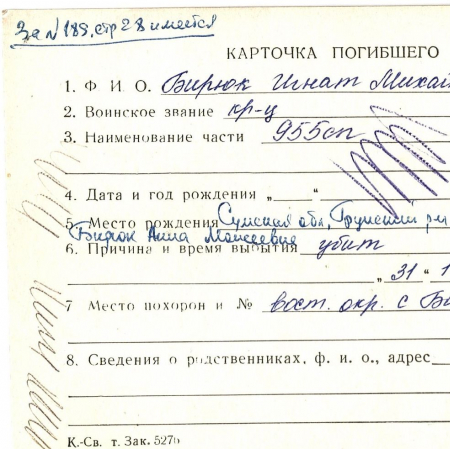 За N 189, стр 28 имеется
КАРТОЧКА ПОГИБШЕГО
1. Ф И. О. Бирюк Игнат Михай
2. Воинское звание кр-ц
3. Наименование части 955сп
4. Дата и год рождения „ “
5. Место рождения Сумская обл, Грунский ра
Бирюк Анна Моисеевна
6. Причина и время выбытия убит
„ 31 “ 1
7 Место похорон и № вост. окр. с Б
8. Сведения о родственниках, ф. и. о., адрес
К.-Св. т. Зак. 527б